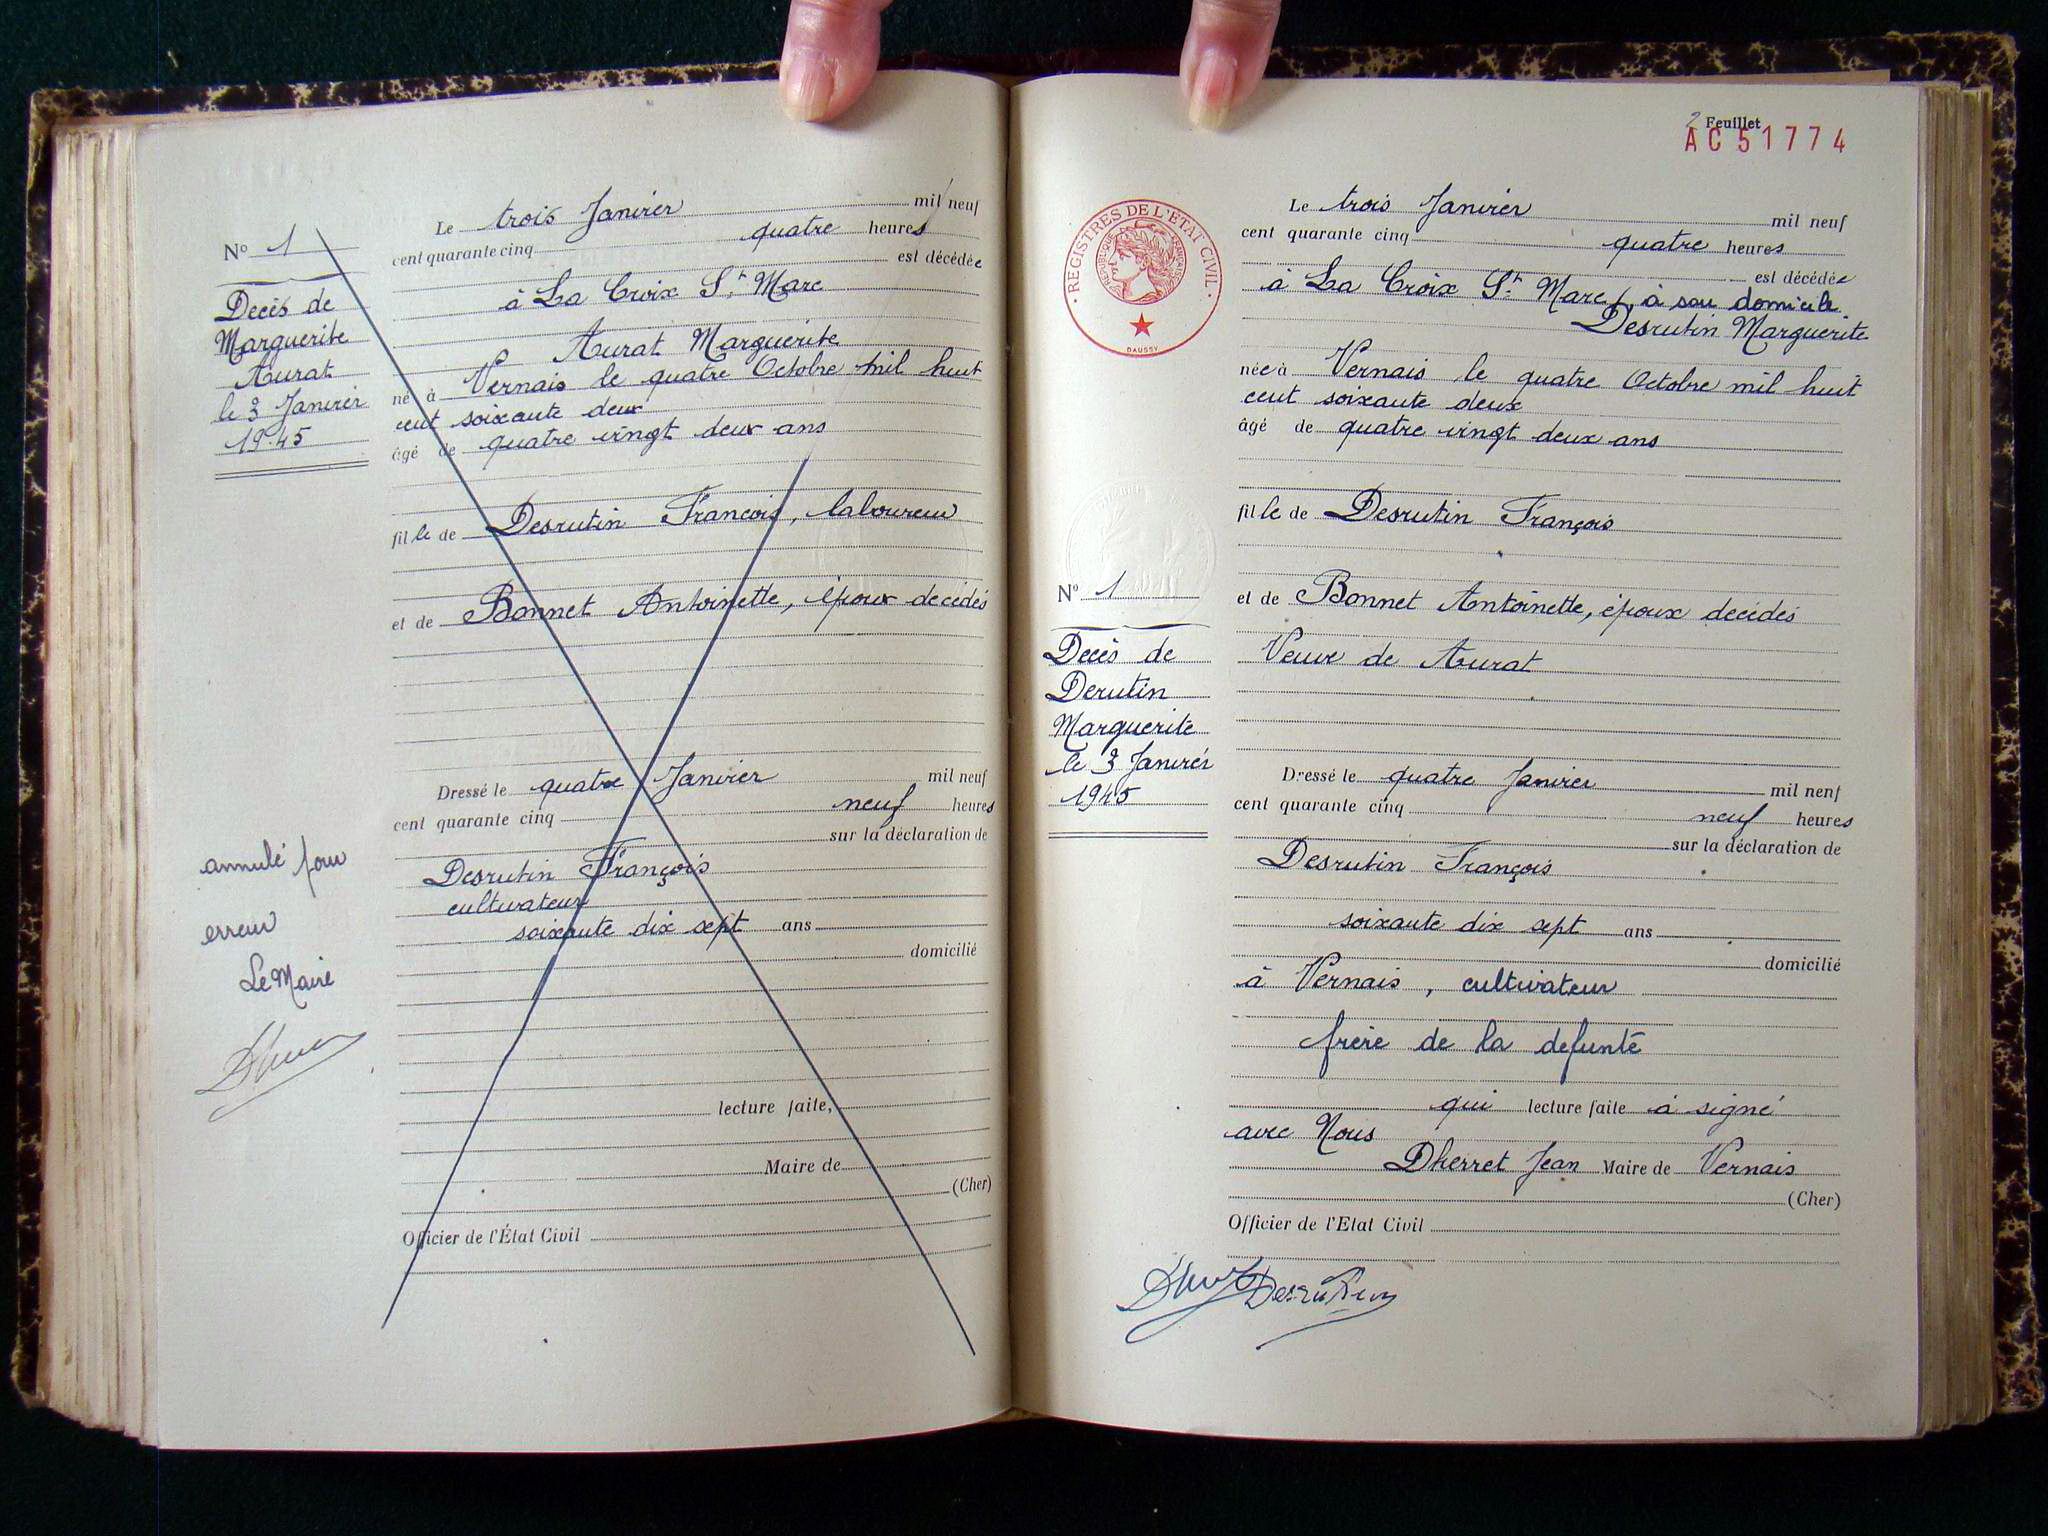 Le trois Janvier mil neuf
N° 1
cent quarante cinq quatre heures
est décédée
à La Croix St Marc
Décès de
Marguerite
Aurat
le 3 Janvier
1945
Aurat Marguerite
né à Vernais le quatre Octobre mil huit
cent soixante deux
âgé de quatre vingt deux ans
fille de Desrutin François, laboureur
et de Bonnet Antoinette, époux decédés
Dressé le quatre Janvier mil neuf
cent quarante cinq neuf heures
sur la déclaration de
Desrutin François
cultivateur
soixante dix sept ans
domicilié
annulé pour
erreur
Le Maire
lecture faite,
Maire de
(Cher)
Officier de l'État Civil
2 Feuillet
AC51774
REGISTRES DE L'ETAT CIVIL
REPUBLIQUE FRANCAISE
DAUSSY
Le trois Janvier mil neuf
cent quarante cinq quatre heures
est décédée
à La Croix St Marc, à son domicile
Desrutin Marguerite
née à Vernais le quatre Octobre mil huit
cent soixante deux
âgé de quatre vingt deux ans
fille de Desrutin François
N° 1
et de Bonnet Antoinette, époux decédés
Décès de
Derutin
Marguerite
le 3 Janvier
1945
Veuve de Aurat
Dressé le quatre Janvier mil neuf
cent quarante cinq neuf heures
sur la déclaration de
Desrutin François
soixante dix sept ans
domicilié
à Vernais, cultivateur
frère de la defunte
qui lecture faite à signé
avec Nous
Dherret Jean Maire de Vernais
(Cher)
Officier de l'Etat Civil
Desrutin